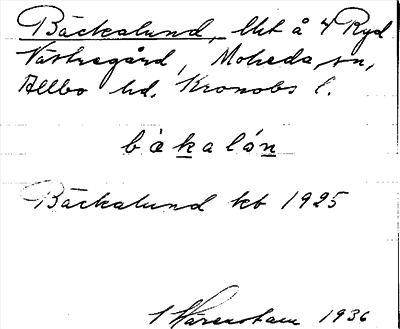 Bäckalund, lht å 4 Ryd
Västregård, Moheda sn,
Allbo hd. Kronobs l.
bækalón
Bäckalund kb 1925
1936